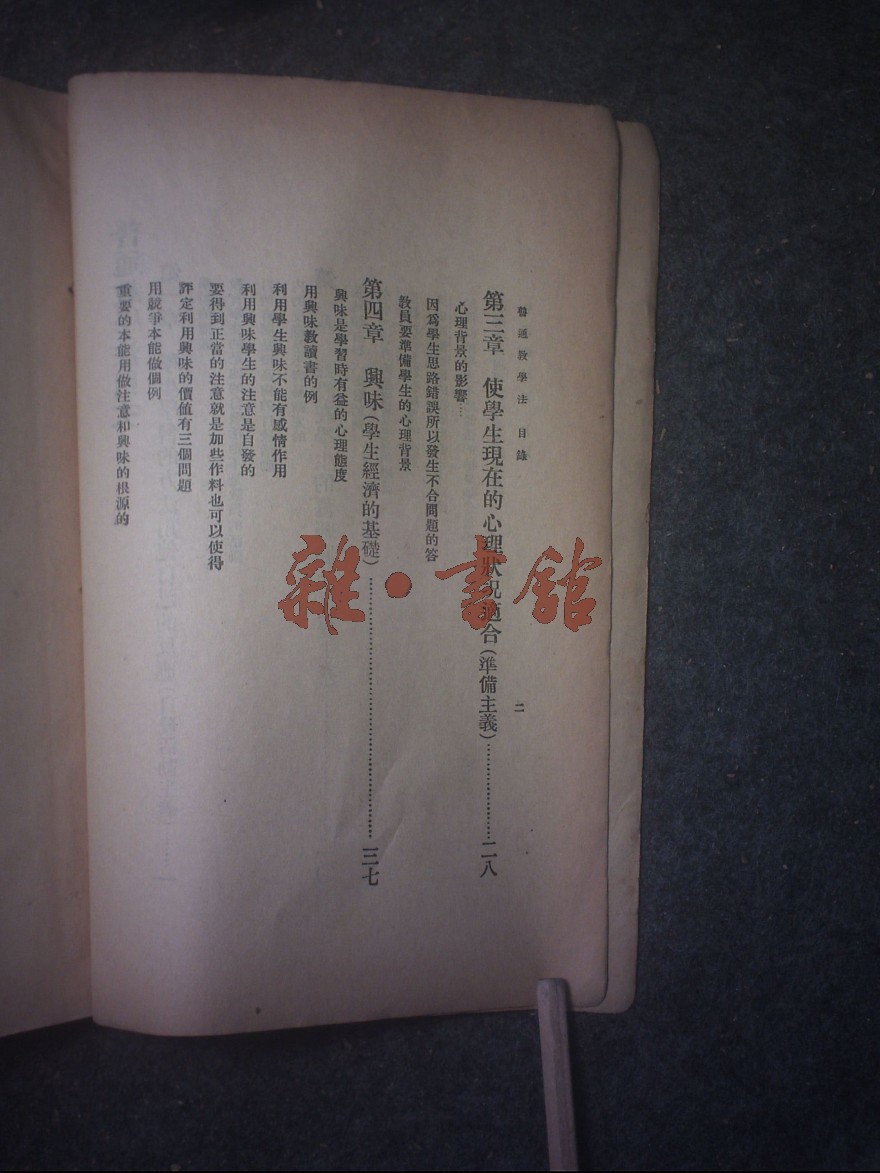 普通教學法 目錄 二
第三章 使學生現在的心理狀況適合(準備主義)…………………二八
心理背景的影響…
因爲學生思路錯誤所以發生不合問題的答
教員要準備學生的心理背景
第四章 興味(學生經濟的基礎)…………………………………三七
興味是學習時有益的心理態度
用興味教讀書的例
利用學生興味不能有感情作用
利用興味學生的注意是自發的
要得到正當的注意就是加些作料也可以使得
評定利用興味的價値有三個問題
用競爭本能做個例
重要的本能用做注意和興味的根源的
雜·書館